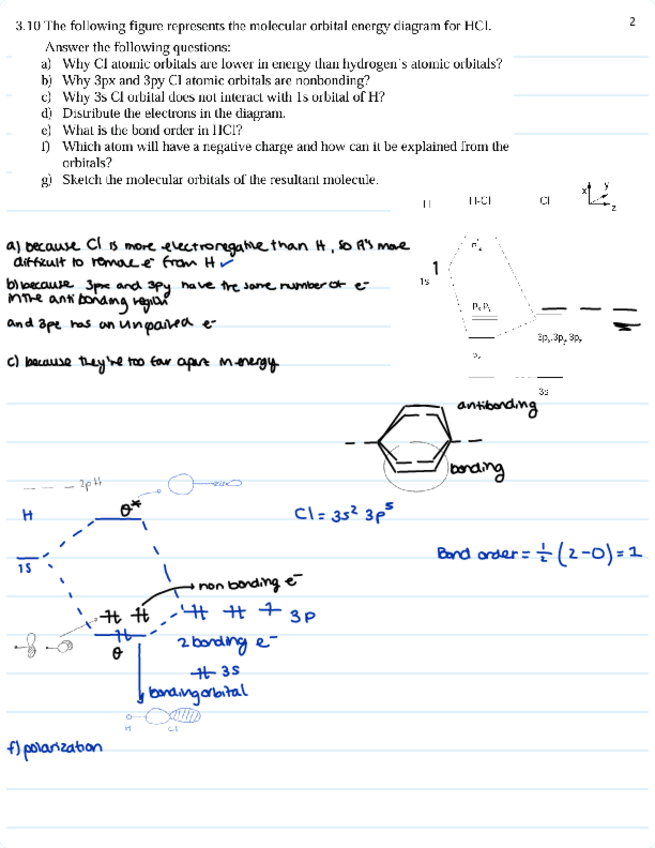 2
3.10 The following figure represents the molecular orbital energy diagram for HCl.
Answer the following questions:
a) Why Cl atomic orbitals are lower in energy than hydrogen's atomic orbitals?
b) Why 3px and 3py Cl atomic orbitals are nonbonding?
c) Why 3s Cl orbital does not interact with 1s orbital of H?
d) Distribute the electrons in the diagram.
e) What is the bond order in HCl?
f) Which atom will have a negative charge and how can it be explained from the
orbitals?
g) Sketch the molecular orbitals of the resultant molecule.
H H-Cl Cl
x y z
a) because Cl is more electronegative than H, so it's more
difficult to remove e⁻ from H ✓
1
1s
b) because 3px and 3py have the same number of e⁻
in the antibonding region
and 3pz has an unpaired e⁻
3s
c) because they're too far apart in energy
antibonding
bonding
2p H
H
1s
θ*
Cl = 3s² 3p⁵
Bond order = ½ (2-0) = 1
non bonding e⁻
3p
2 bonding e⁻
θ
3s
bonding orbital
H Cl
f) polarization